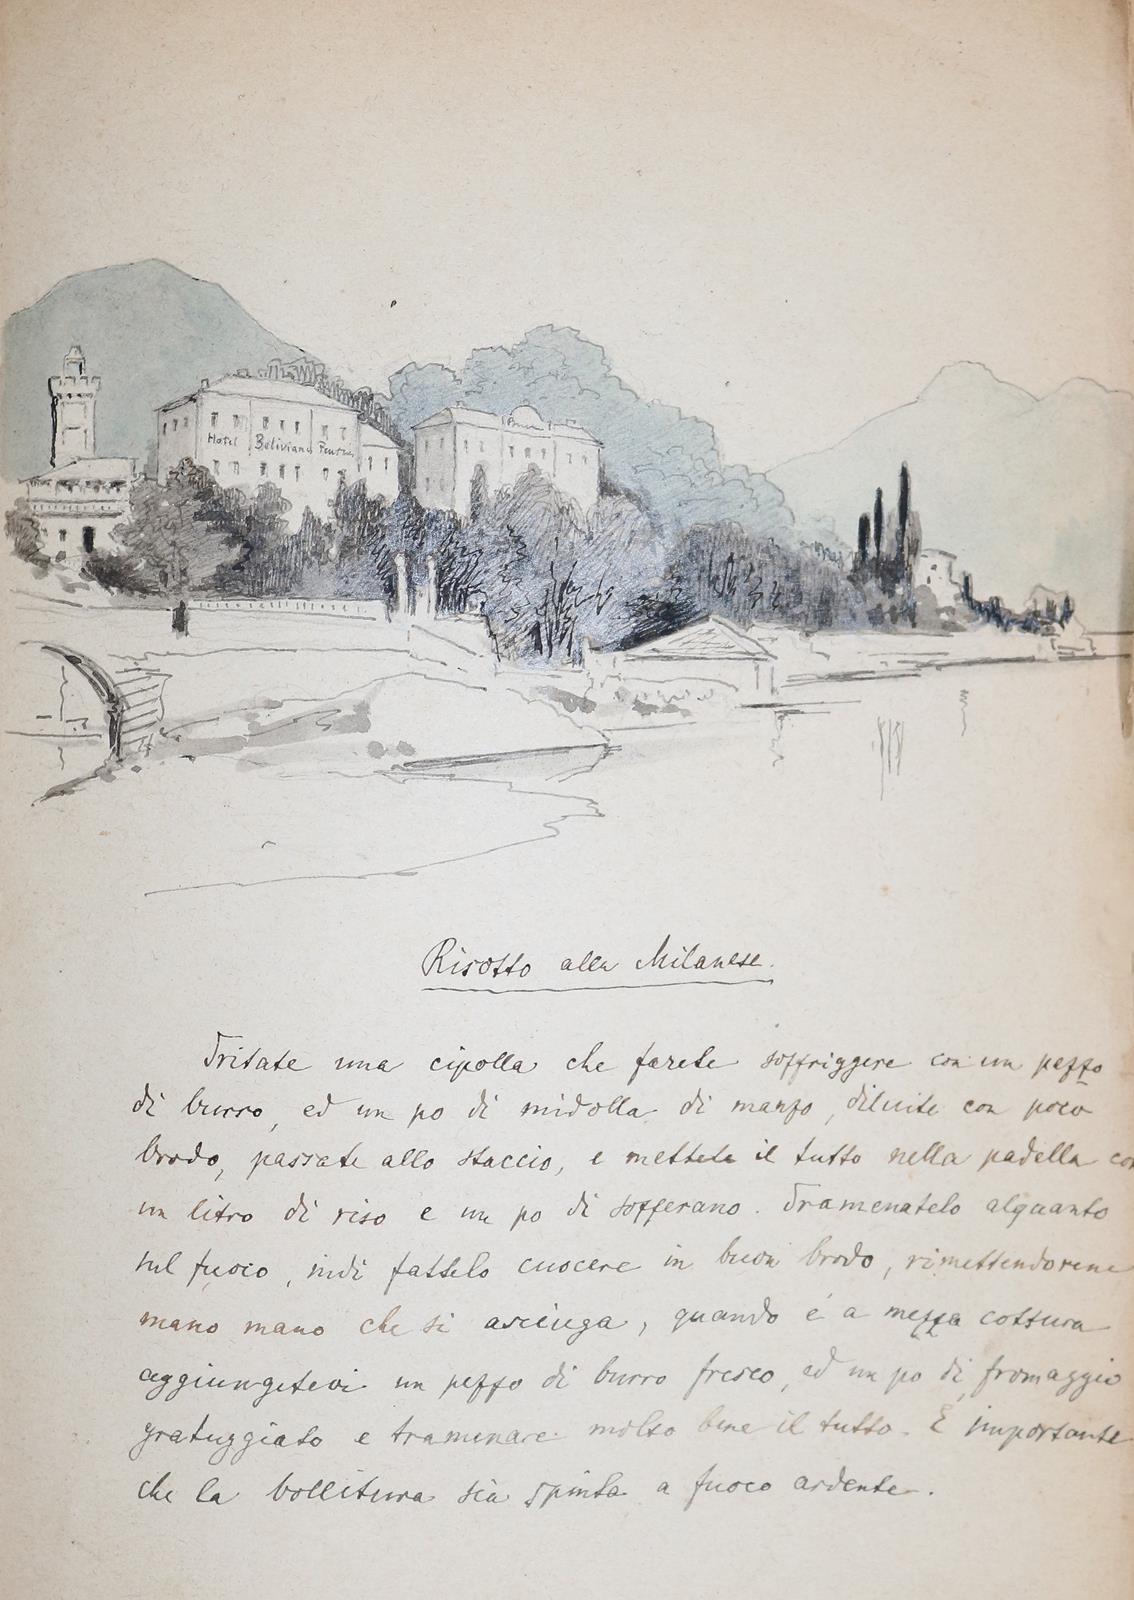 Hotel Belivian Pension
Risotto alla Milanese.
Tritate una cipolla che farete soffriggere con un pezzo
di burro, ed un po di midolla di manzo, diluite con poco
brodo, passate allo staccio, e mettete il tutto nella padella con
un litro di riso e un po di safferano. Tramenatelo alquanto
sul fuoco, indi fattelo cuocere in buon brodo, rimettendovene
mano mano che si asciuga, quando é a mezza cottura
aggiungetevi un pezzo di burro fresco, ed un po di fromaggio
gratuggiato e tramenare molto bene il tutto. E importante
che la bollitura sia spinta a fuoco ardente.